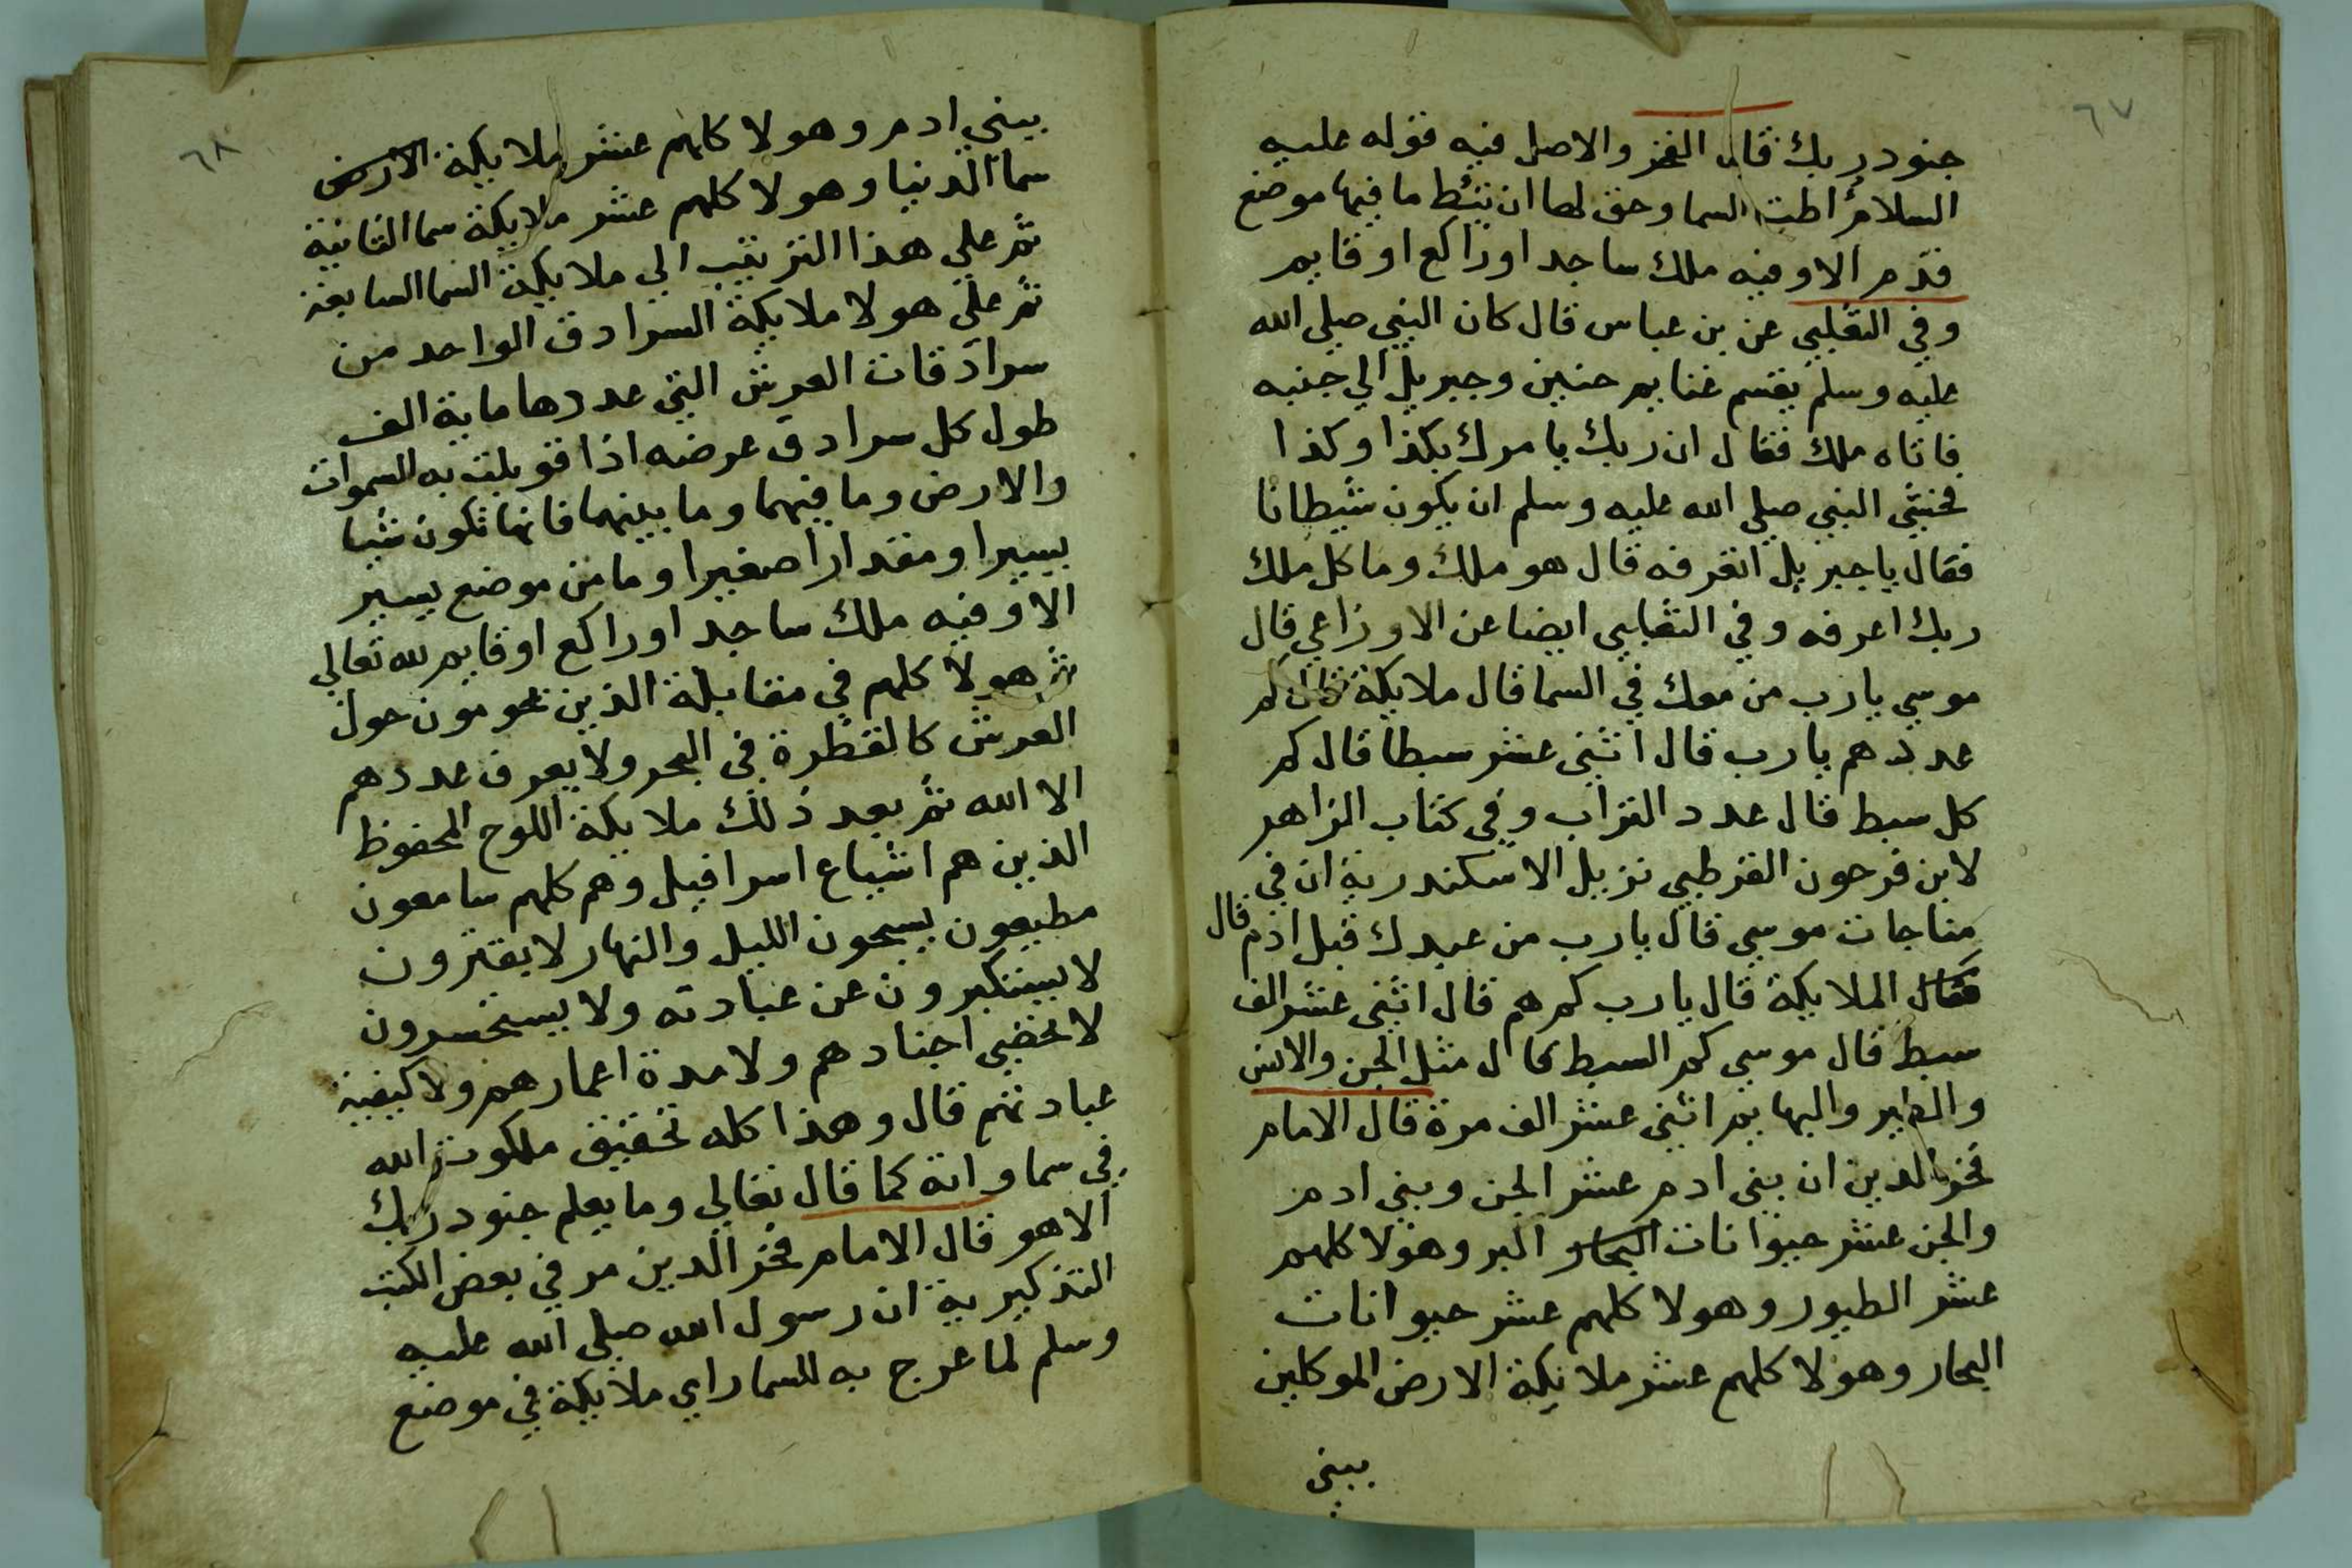 ٦٧
جنود ربك قال الفخر والاصل فيه قوله عليه
السلام اطت السما وحق لها ان تئط ما فيها موضع
قدم الا وفيه ملك ساجد او راكع او قايم
وفي الثعلبي عن بن عباس قال كان النبي صلي الله
عليه وسلم يقسم غنايم حنين وجبريل الي جنبه
فاتاه ملك فقال ان ربك يامرك بكذا وكذا
فخشي النبي صلي الله عليه وسلم ان يكون شيطانا
فقال يا جبريل اتعرفه قال هو ملك وما كل ملك
ربك اعرفه وفي الثعلبي ايضا عن الاوزاعي قال
موسي يارب من معك في السما قال ملايكة قال كم
عددهم يارب قال اثني عشر سبطا قال كم
كل سبط قال عدد التراب وفي كتاب الزاهر
لابن فرحون القرطبي نزيل الاسكندرية ان في
مناجات موسي قال يارب من عبدك قبل ادم قال
فقال الملايكة قال يارب كم هم قال اثني عشر الف
سبط قال موسي كم السبط قال مثل الجن والانس
والطير والبهايم اثني عشر الف مرة قال الامام
فخر الدين ان بني ادم عشر الجن وبني ادم
والجن عشر حيوانات البحار البر وهولا كلهم
عشر الطيور وهولا كلهم عشر حيوانات
البحار وهولا كلهم عشر ملايكة الارض الموكلين
ببني
٦٨
ببني ادم وهولا كلهم عشر ملايكة الارض
سما الدنيا وهولا كلهم عشر ملايكة سما الثانية
ثم علي هذا الترتيب الي ملايكة السما السابعة
ثم علي هولا ملايكة السرادق الواحد من
سرادقات العرش التي عددها ماية الف
طول كل سرادق عرضه اذا قوبلت به السموات
والارض وما فيهما وما بينهما فانها تكون شيا
يسيرا ومقدارا صغيرا وما من موضع يسير
الا وفيه ملك ساجد او راكع او قايم لله تعالي
ثم هولا كلهم في مقابلة الذين يحومون حول
العرش كالقطرة في البحر ولا يعرف عددهم
الا الله ثم بعد ذلك ملايكة اللوح المحفوظ
الذين هم اشياع اسرافيل وهم كلهم سامعون
مطيعون يسبحون الليل والنهار لا يفترون
لا يستكبرون عن عبادته ولا يستحسرون
لا تحصي اجنادهم ولا مدة اعمارهم ولا كيفية
عبادتهم قال وهذا كله تحقيق ملكوت الله
في سماواته كما قال تعالي وما يعلم جنود ربك
الا هو قال الامام فخر الدين مر في بعض الكتب
التذكيرية ان رسول الله صلي الله عليه
وسلم لما عرج به للسما راي ملايكة في موضع